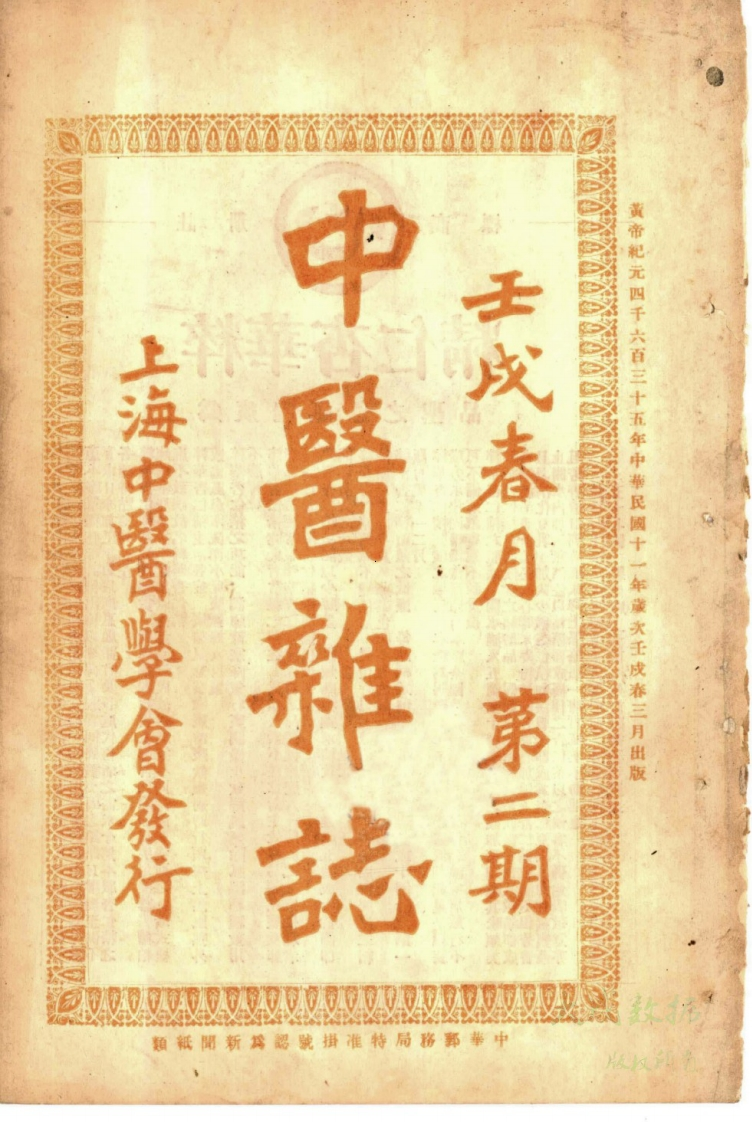 黃帝紀元四千六百三十五年中華民國十一年歲次壬戌春三月出版
壬戌春月 第二期
中醫雜誌
上海中醫學會發行
中華郵務局特准掛號認爲新聞紙類